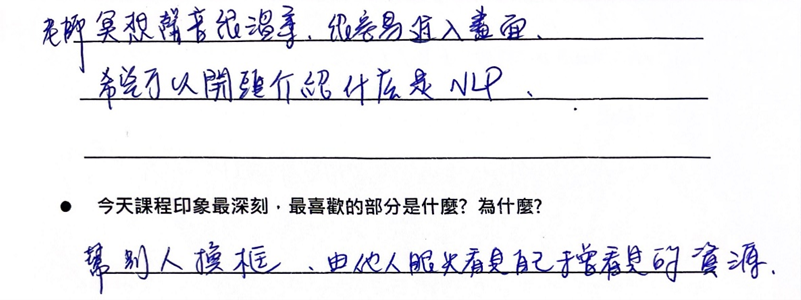 老師冥想聲音很溫柔、很容易進入畫面、
希望可以開頭介紹什広是NLP、
● 今天課程印象最深刻，最喜歡的部分是什麼? 為什麼?
幫別人換框、由他人眼光看見自己未曾看見的資源、